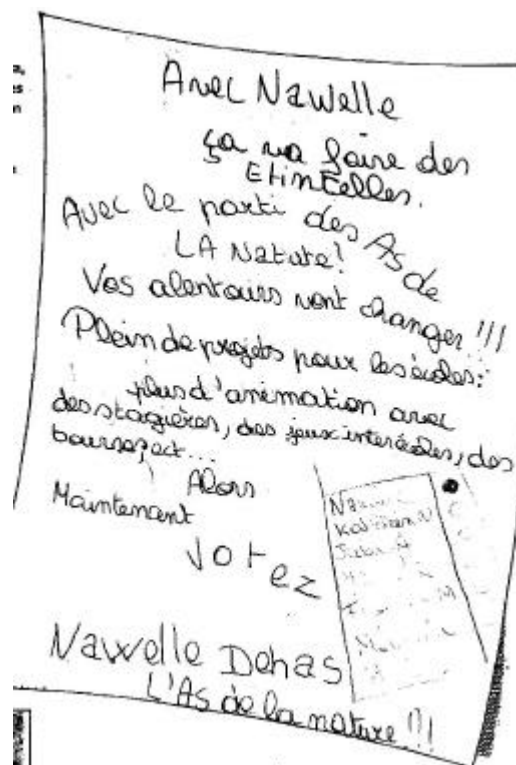 Avec Nawelle
ça va faire des
Etintelles.
Avec le parti des As de
LA Nature!
Vos alentours vont changer !!!
Plein de projets pour les écoles:
plus d'animation avec
des stagières, des jeux interécoles, des
bourses, ect...
Alors
Maintenant
Votez
Nawelle Dehas
L'As de la nature !!!